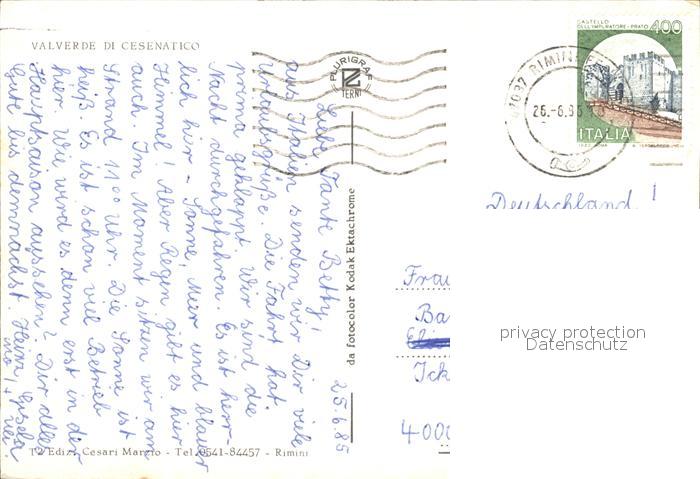 VALVERDE DI CESENATICO
PLURIGRAF
TERNI
CASTELLO
DELL'IMPERATORE-PRATO 400
ITALIA
RIMINI
26.-6.85
Liebe Tante Betty!
aus Italien senden wir Dir viele
Urlaubsgrüße. Die Fahrt hat
prima geklappt. Wir sind die
Nacht durchgefahren. Es ist herr-
lich hier - Sonne, Meer und blauer
Himmel! Aber Regen gibt es hier
auch. Im Moment sitzen wir am
Strand 11 00 Uhr. Die Sonne ist
heiß. Es ist schon viel Betrieb
hier. Wie wird es denn erst in der
Hauptsaison aussehen? Dir alles
Gute bis demnächst. Heinz, Gisela
25.6.85
da fotocolor Kodak Ektachrome
Ediz. Cesari Marzio - Tel. 0541-84457 - Rimini
Deutschland!
Frau
Ba
Ick
400
privacy protection
Datenschutz